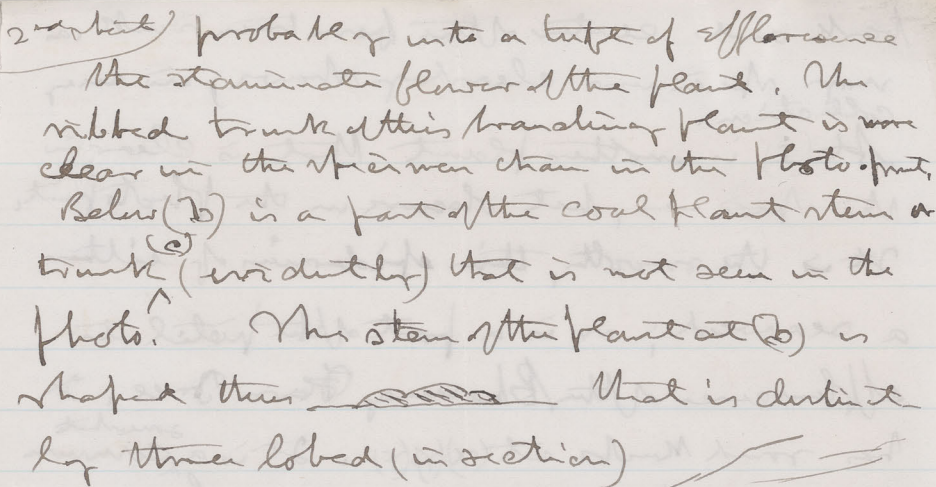 2nd sheet) probably into a tuft of efflorscence
the staminate flower of the plant. The
ribbed trunk of this branching plant is more
clear in the specimen than in the photo.print.
Below (b) is a part of the coal plant stem or
(c)
trunk (evidently) that is not seen in the
photo. The stem of the plant at (b) is
shaped thus that is distinct
ly three lobed (in section)